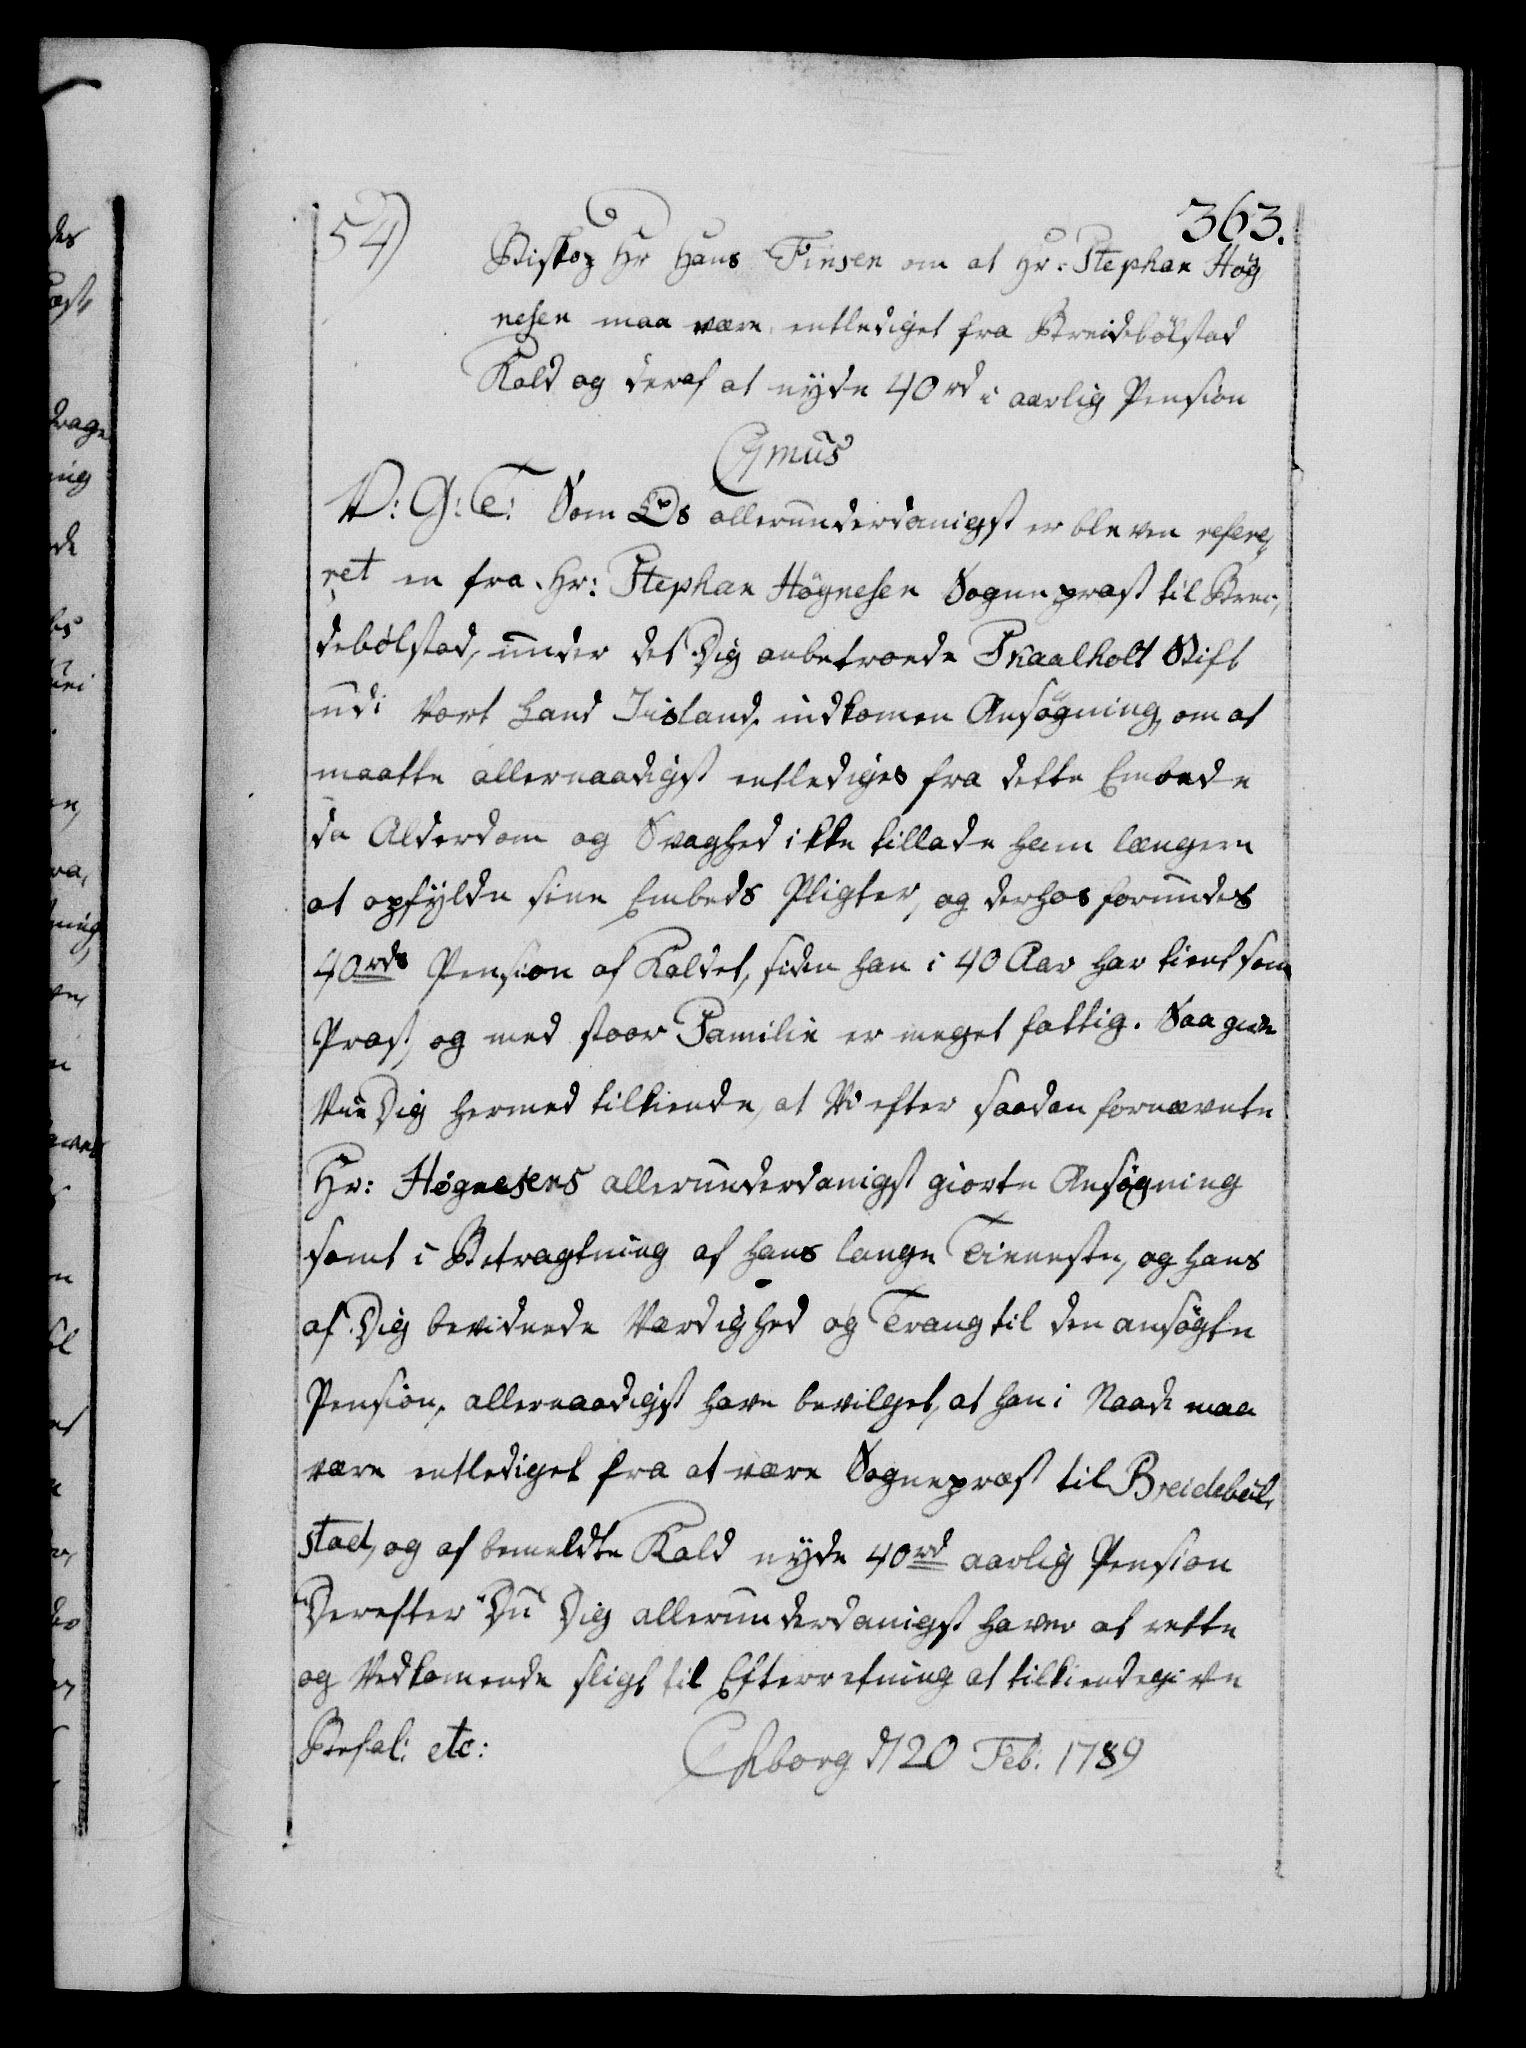 363.
54)
Biskop Hr Hans Finsen om at Hr: Stephan Høg
nesen maa være entlediget fra Breidebølstad
Kald og deraf at nyde 40 rd i aarlig Pension
C7mus
V: G: T: Som Os allerunderdanigst er bleven refere,
ret en fra Hr: Stephan Høgnesen Sognepræst til Brei,
debølstad, under det Dig anbetroede Skaalholt Stift
udi Vort Land Iisland, indkomen Ansøgning, om at
maatte allernaadigst entlediges fra dette Embede
da Alderdom og Svaghed ikke tillade ham længere
at opfylde sine Embeds Pligter, og derhos forundes
40rds Pension af Kaldet, siden han i 40 Aar har tient som
Præst, og med stoor Familie er meget fattig. Saa give
Vi Dig hermed tilkiende, at Vi efter saadan fornævnte
Hr: Høgnesens allerunderdanigst giorte Ansøgning
samt i Betragtning af hans lange Tieneste, og hans
af Dig bevidnede Værdighed og Trang til den ansøgte
Pension, allernaadigst have bevilget, at han i Naade maa
være entlediget fra at være Sognepræst til Breidebøl,
stad, og af bemeldte Kald nyde 40rd aarlig Pension
Derefter Du Dig allerunderdanigst haver at rette
og Vedkomende sligt til Efterretning at tilkiendegive
Befal: etc:
Chborg d 20 Feb: 1789